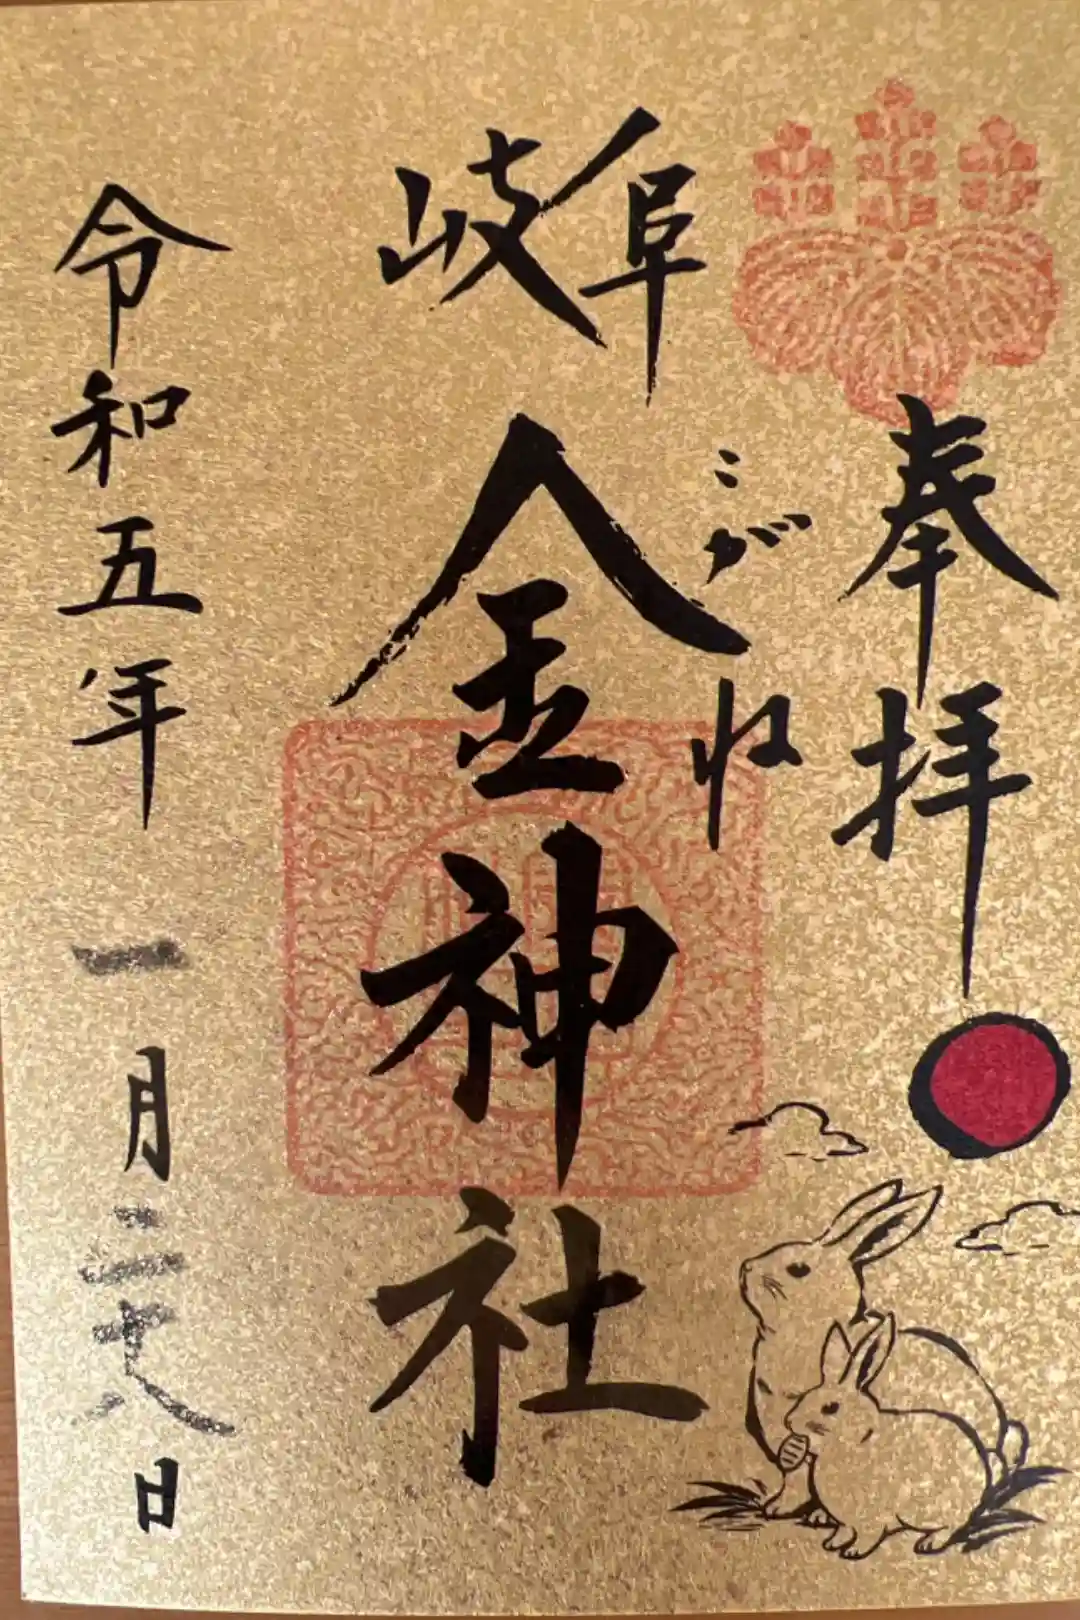 奉拝
こがね
岐阜
金神社
令和五年一月二十八日